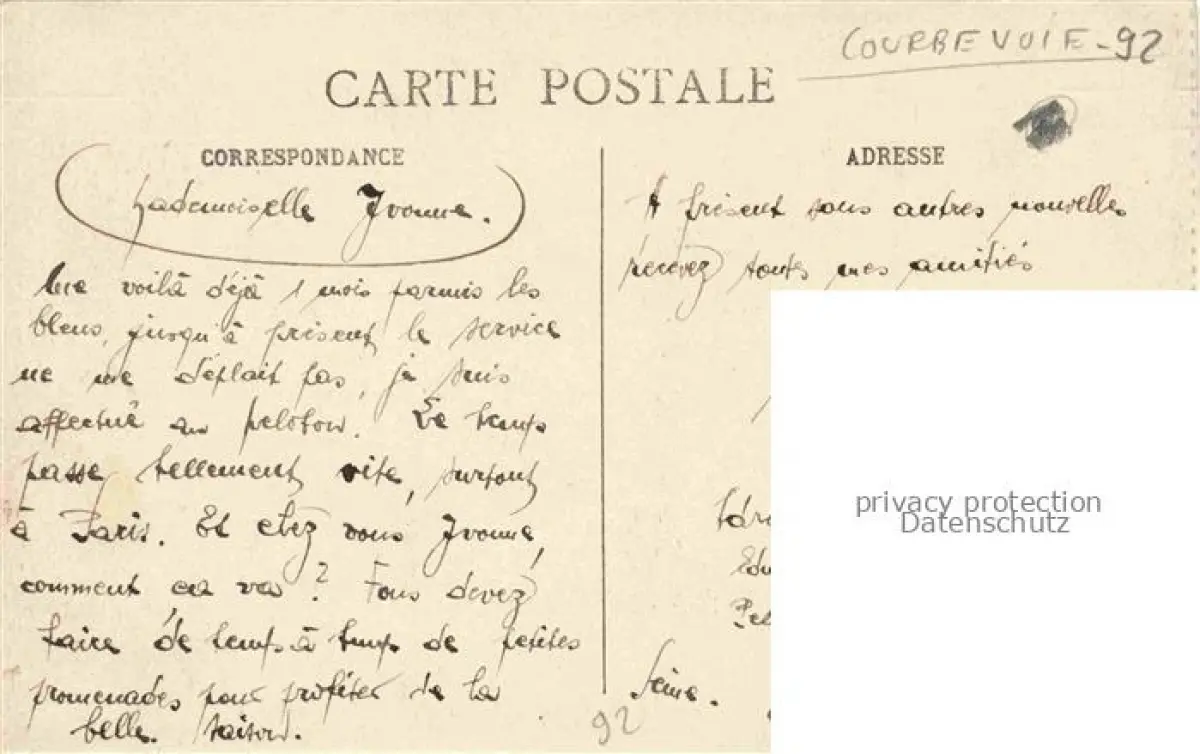 COURBEVOIE - 92
CARTE POSTALE
CORRESPONDANCE
Mademoiselle Yvonne.
Me voilà déjà 1 mois parmis les
bleus, jusqu'à présent le service
ne me déplait pas, je suis
affectué au peloton. Le temps
passe tellement vite, surtout
à Paris. Et chez vous Yvonne,
comment ca va? Vous devez
faire de temps à temps de petites
promenades pour profiter de la
belle saison.
92
ADRESSE
A présent sans autres nouvelles
recevez toutes mes amitiés
Seine.
privacy protection
Datenschutz